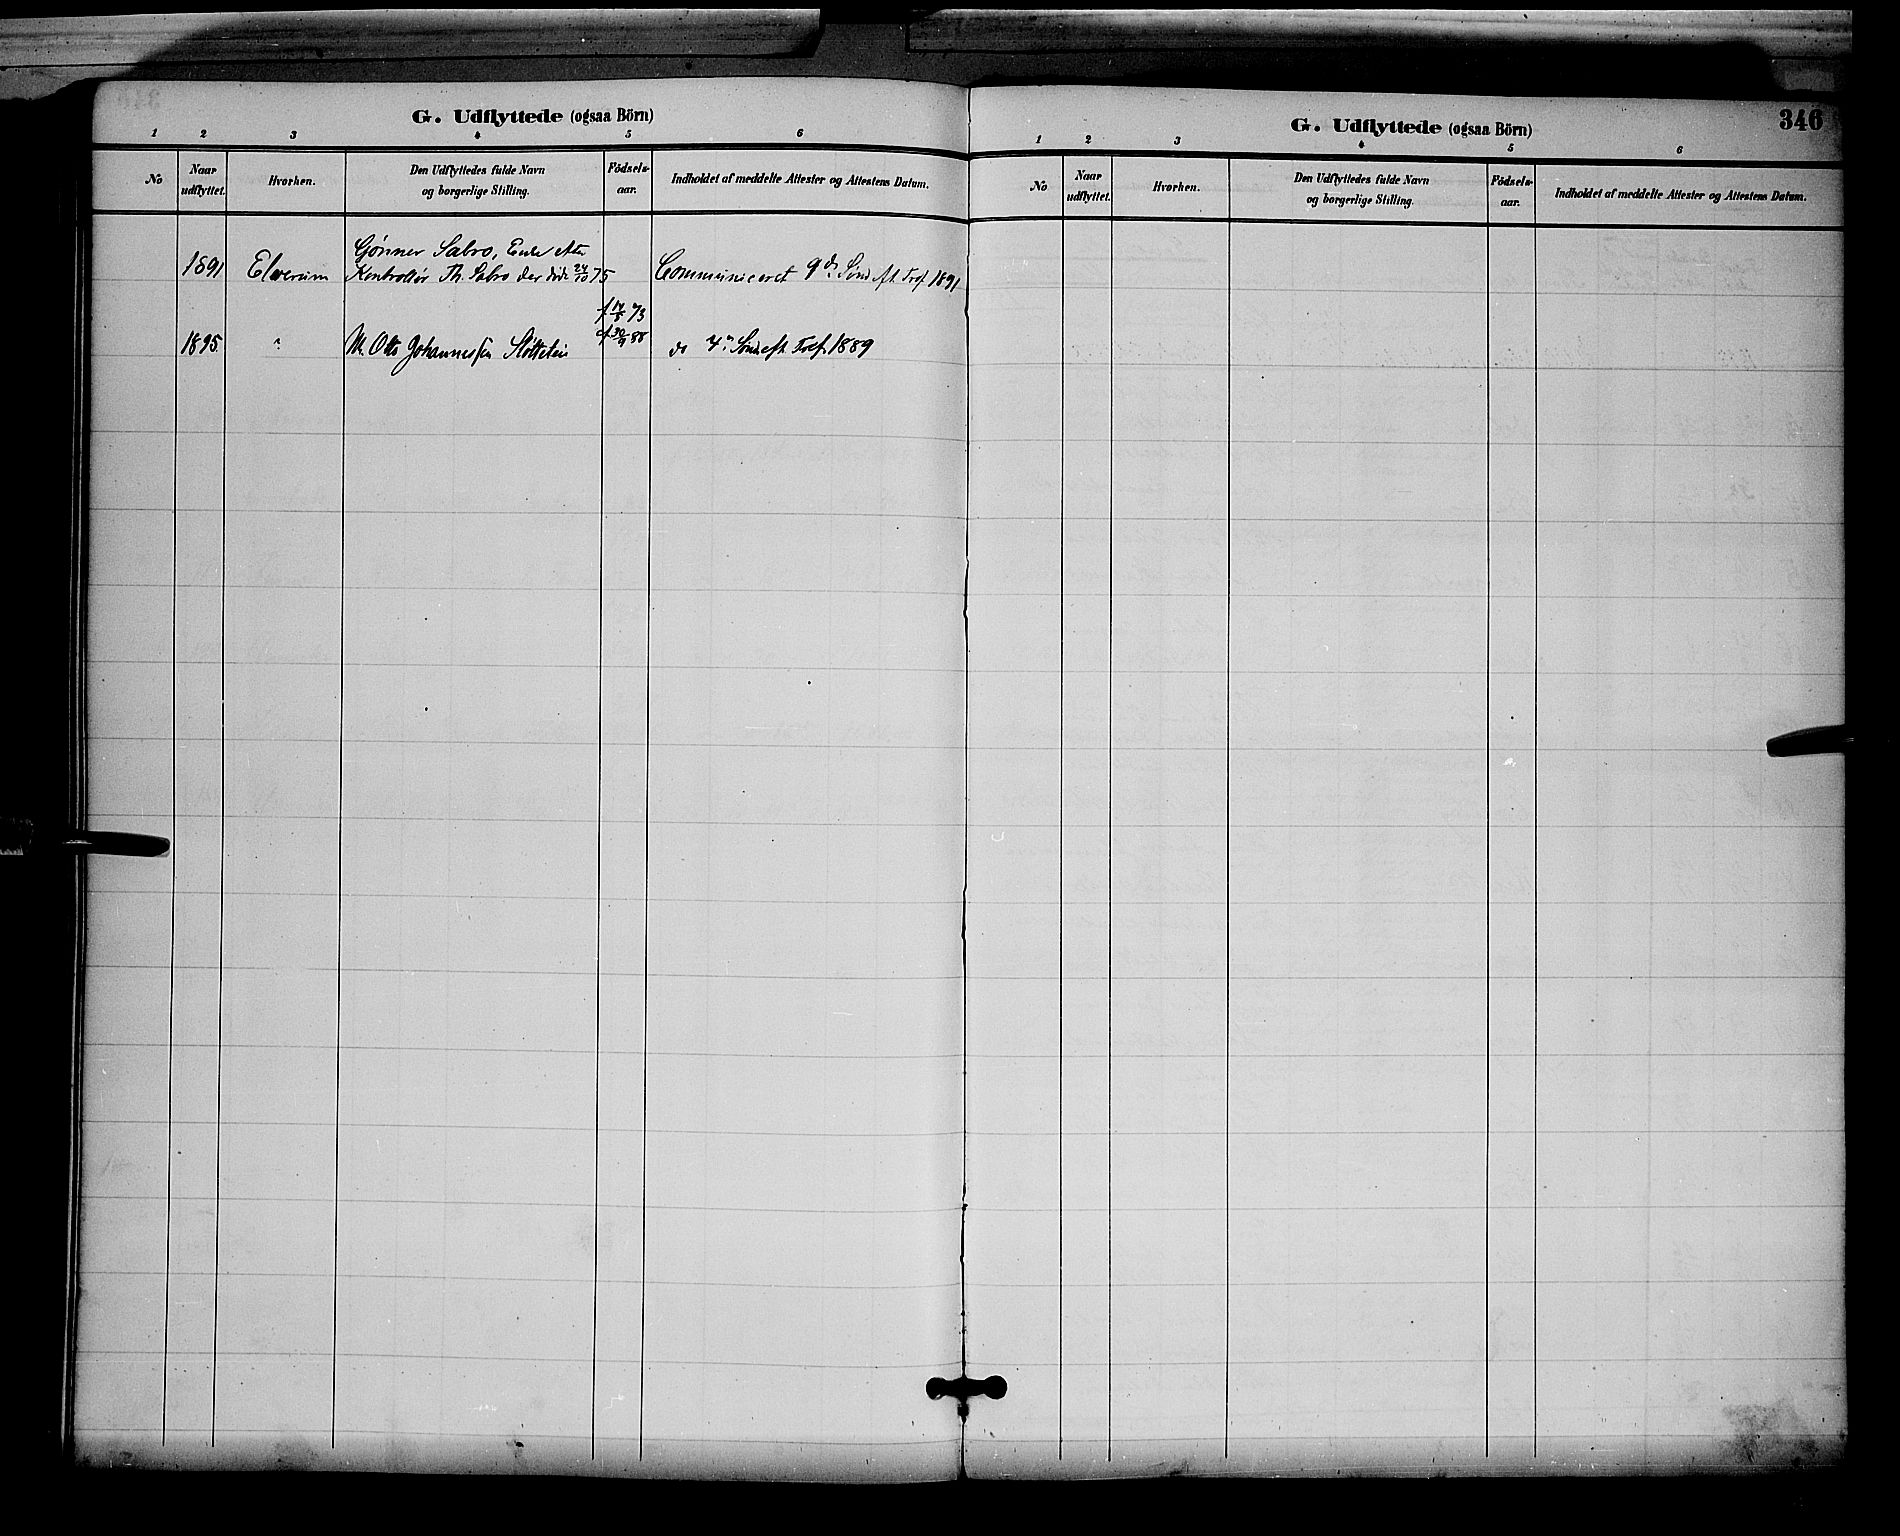 G. Udflyttede (ogsaa Börn)
1 2 3 4 5 6
No Naar udflyttet. Hvorhen. Den Udflyttedes fulde Navn og borgerlige Stilling. Födsels-aar. Indholdet af meddelte Attester og Attestens Datum.
Gjønner Sabro, Enke efter
1891 Elverum Kontrollør Th. Sabro der døde 24/10 75 Communiceret 9de Sønd eft Tref 1891
f 17/5 73
1895 " Otto Johannessen cf 30/9 88 do 7n Sønd eft Tref 1889
346
G. Udflyttede (ogsaa Börn)
1 2 3 4 5 6
No Naar udflyttet. Hvorhen. Den Udflyttedes fulde Navn og borgerlige Stilling. Födsels-aar. Indholdet af meddelte Attester og Attestens Datum.